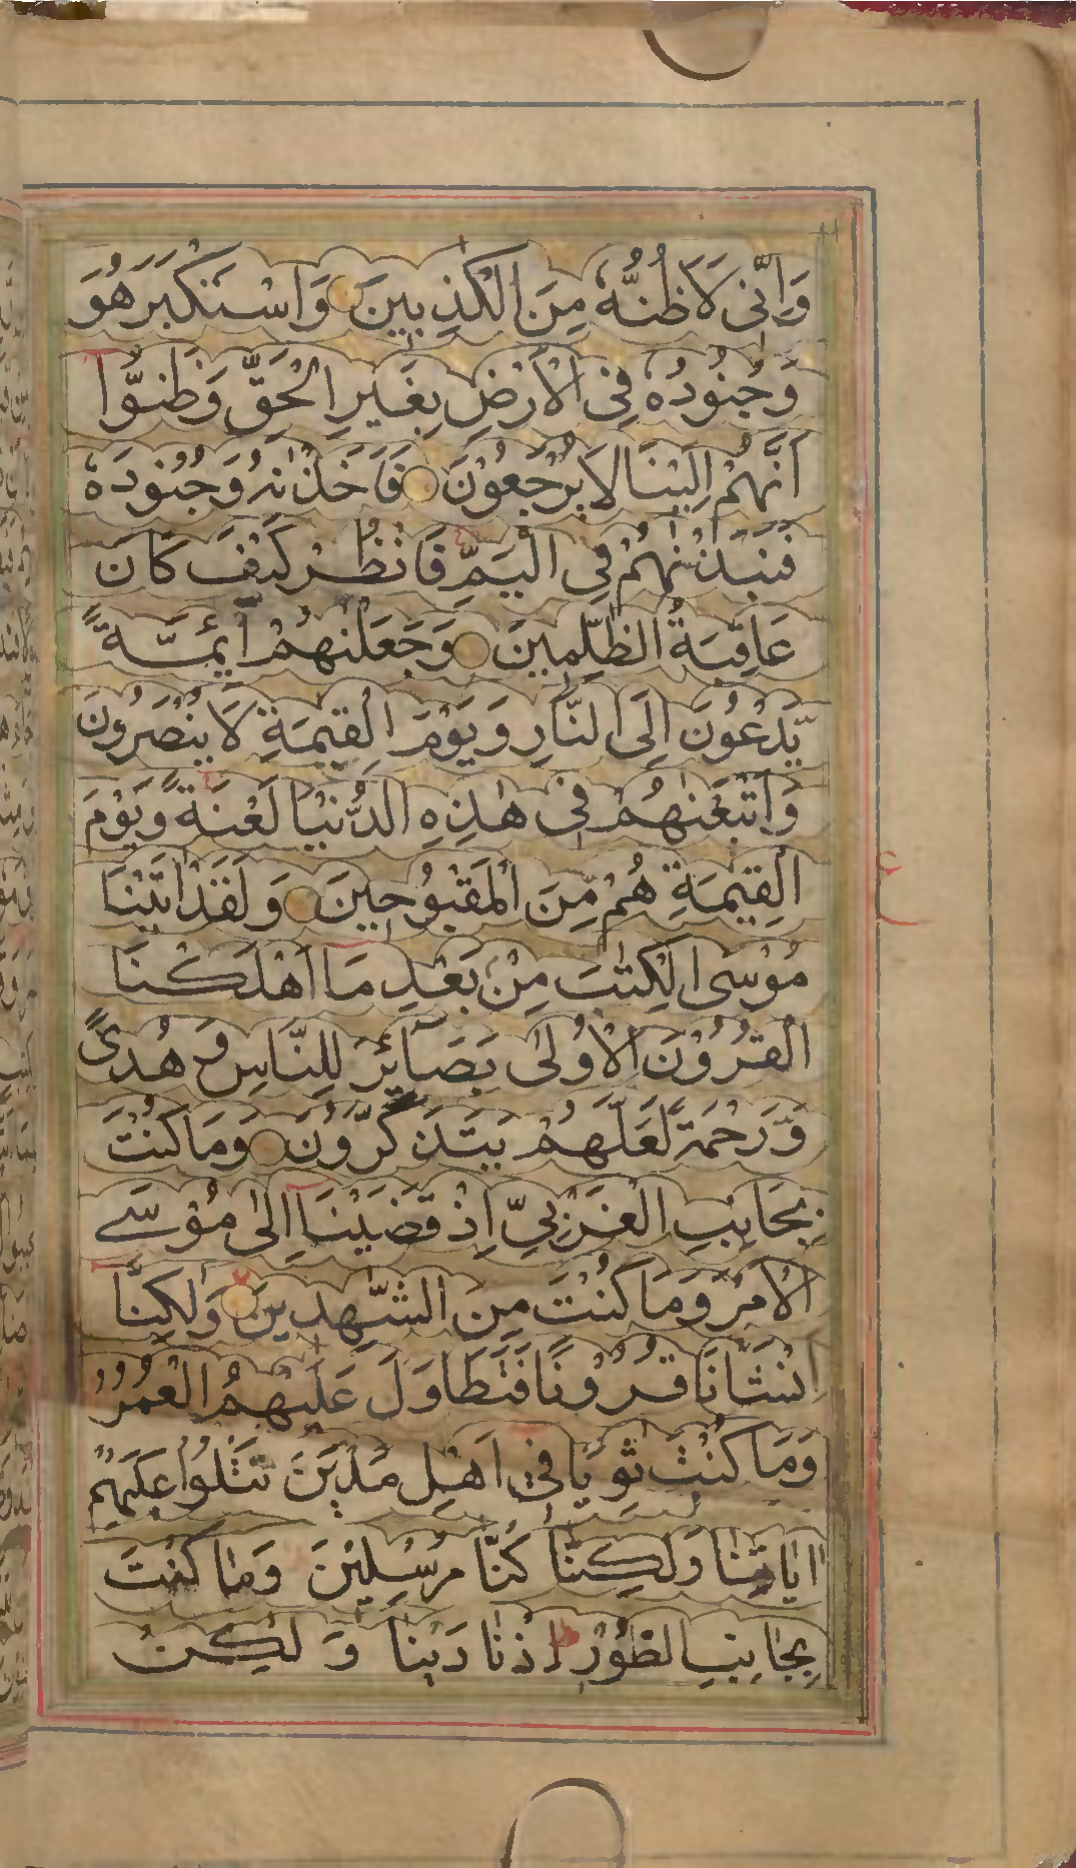 وَاِنِّی لَاَظُنُّهٗ مِنَ الْكٰذِبِینَ وَاسْتَكْبَرَ هُوَ
وَجُنُودُهٗ فِی الْاَرْضِ بِغَیرِ الْحَقِّ وَظَنُّوٓا
اَنَّهُمْ اِلَیْنَا لَا یُرْجَعُوْنَ فَاَخَذْنٰهُ وَجُنُودَهٗ
فَنَبَذْنٰهُمْ فِی الْیَمِّ فَانْظُرْ كَیْفَ كَانَ
عَاقِبَةُ الظّٰلِمِینَ وَجَعَلْنٰهُمْ اَئِمَّةً
یَّدْعُوْنَ اِلَی النَّارِ وَیَوْمَ الْقِیٰمَةِ لَا یُنْصَرُوْنَ
وَاَتْبَعْنٰهُمْ فِی هٰذِهِ الدُّنْیَا لَعْنَةً وَیَوْمَ
الْقِیٰمَةِ هُمْ مِّنَ الْمَقْبُوْحِینَ وَلَقَدْ اٰتَیْنَا
مُوْسَی الْكِتٰبَ مِنْۢ بَعْدِ مَآ اَهْلَكْنَا
الْقُرُوْنَ الْاُوْلٰی بَصَآئِرَ لِلنَّاسِ وَ هُدًی
وَّرَحْمَةً لَّعَلَّهُمْ یَتَذَكَّرُوْنَ وَمَا كُنْتَ
بِجَانِبِ الْغَرْبِیِّ اِذْ قَضَیْنَآ اِلٰی مُوْسَے
الْاَمْرَ وَمَا كُنْتَ مِنَ الشّٰهِدِینَ وَلٰكِنَّآ
اَنْشَاْنَا قُرُوْنًا فَتَطَاوَلَ عَلَیْهِمُ الْعُمُرُ
وَمَا كُنْتَ ثَوِیًا فِیْ اَهْلِ مَدْیَنَ تَتْلُوْا عَلَیْهِمْ
اٰیَاتِنَا وَلٰكِنَّا كُنَّا مُرْسِلِیْنَ وَمَا كُنْتَ
بِجَانِبِ الطُّوْرِ اِذْ نَادَیْنَا وَ لٰكِنْ
ع